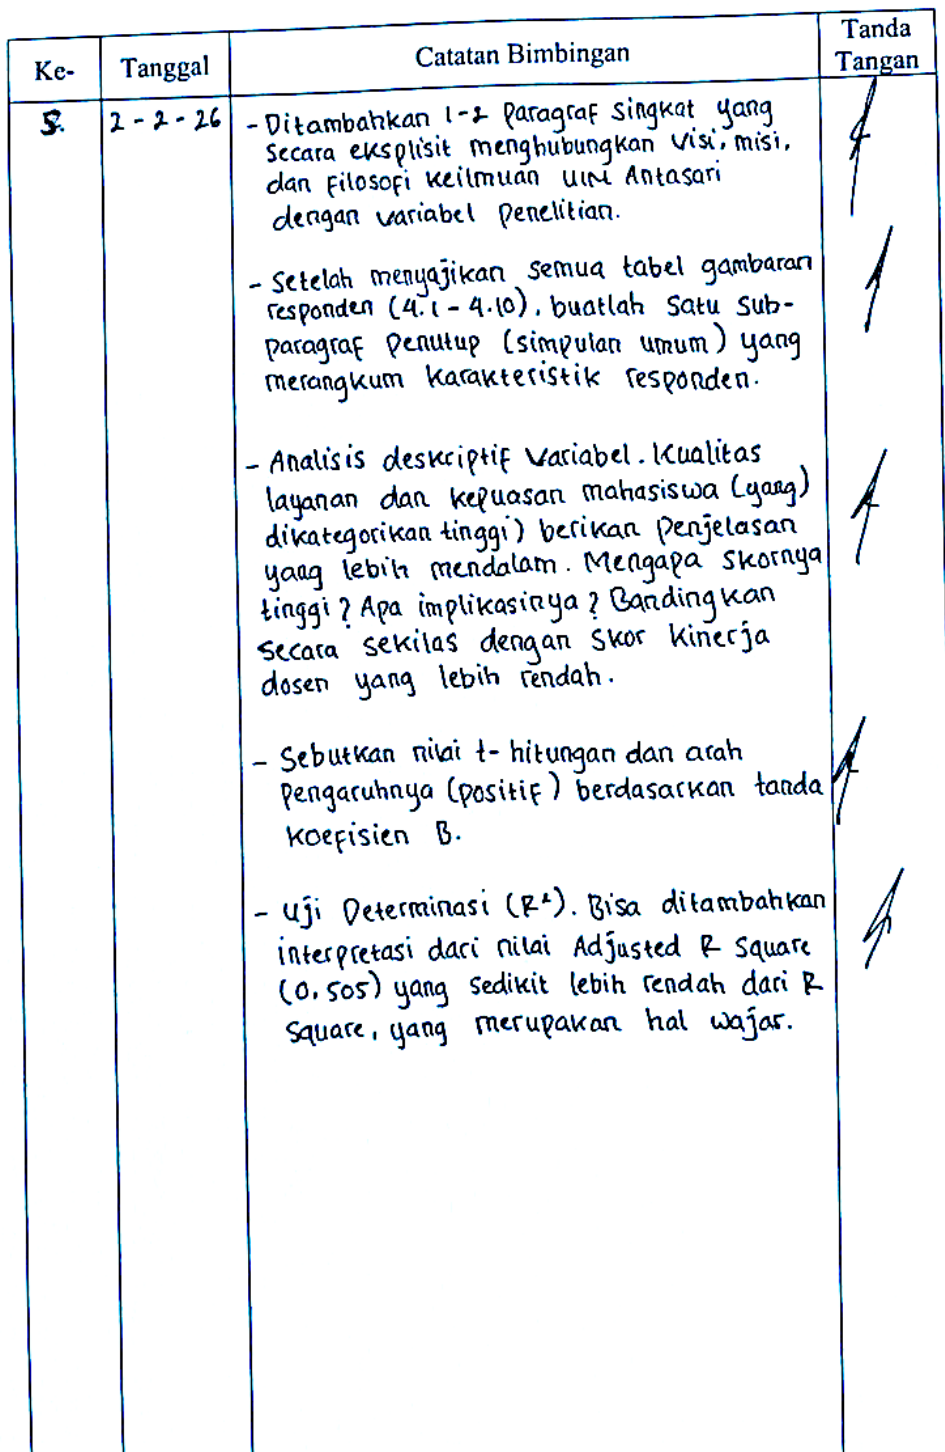 Ke-
Tanggal
Catatan Bimbingan
Tanda
Tangan
5.
2 - 2 - 26
- Ditambahkan 1-2 Paragraf Singkat yang
Secara eksplisit menghubungkan Visi, misi,
dan Filosofi Keilmuan UIN Antasari
dengan variabel Penelitian.
- Setelah menyajikan semua tabel gambaran
responden (4.1 - 4.10), buatlah Satu Sub-
paragraf Penutup (simpulan umum) yang
merangkum Karakteristik responden.
- Analisis deskriptif Variabel. Kualitas
layanan dan kepuasan mahasiswa (yang)
dikategorikan tinggi) berikan Penjelasan
yang lebih mendalam. Mengapa Skornya
tinggi? Apa implikasinya? Bandingkan
Secara sekilas dengan Skor Kinerja
dosen yang lebih rendah.
- Sebutkan nilai t-hitungan dan arah
Pengaruhnya (positif) berdasarkan tanda
Koefisien B.
- Uji Determinasi (R²). Bisa ditambahkan
interpretasi dari nilai Adjusted R Square
(0,505) yang Sedikit lebih rendah dari R
Square, yang merupakan hal wajar.